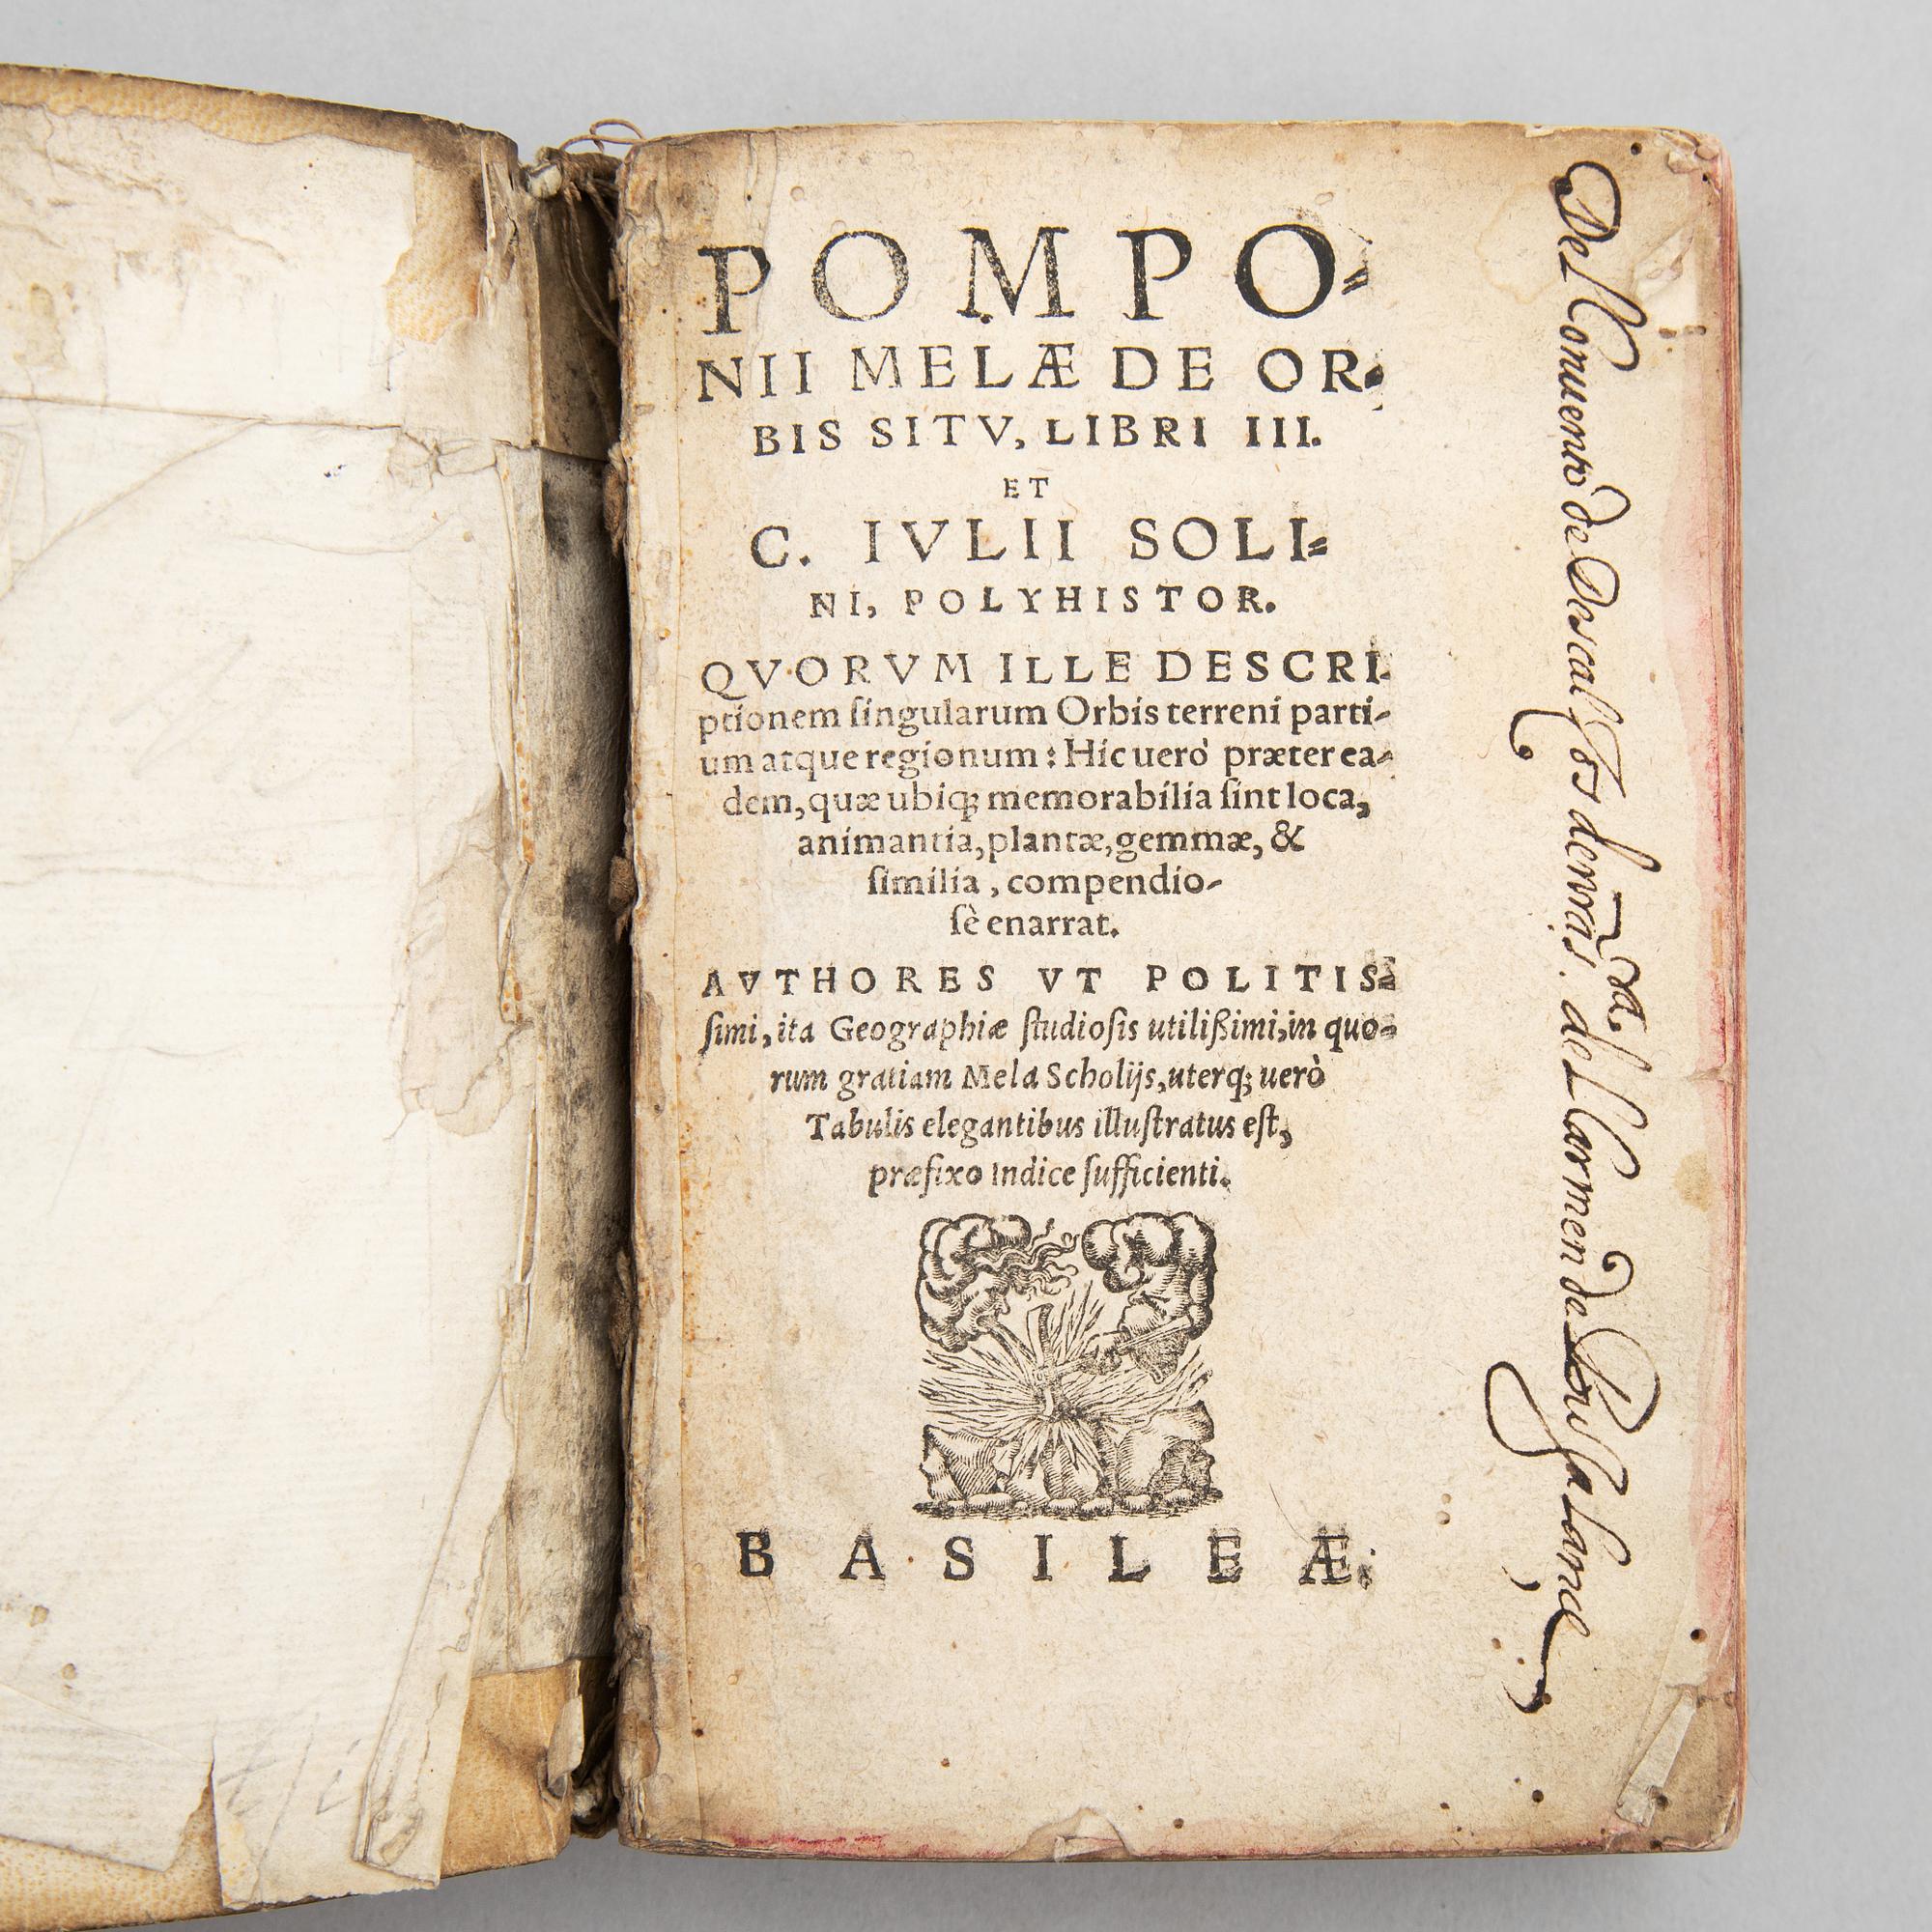 POMPO⸗
NII MELÆ DE OR⸗
BIS SITV, LIBRI III.
ET
C. IVLII SOLI⸗
NI, POLYHISTOR.
QVORVM ILLE DESCRI⸗
ptionem ſingularum Orbis terreni parti⸗
um atque regionum: Hic uerò præter ea⸗
dem, quæ ubiq; memorabilia ſint loca,
animantia, plantæ, gemmæ, &
ſimilia, compendio⸗
ſè enarrat.
AVTHORES VT POLITIS⸗
ſimi, ita Geographiæ ſtudioſis utilißimi, in quo⸗
rum gratiam Mela Scholijs, uterq; uerò
Tabulis elegantibus illuſtratus eſt,
præfixo Indice ſufficienti.
BASILEÆ.
Del Conuento de Descalços de nrã. Srã. del Carmen de